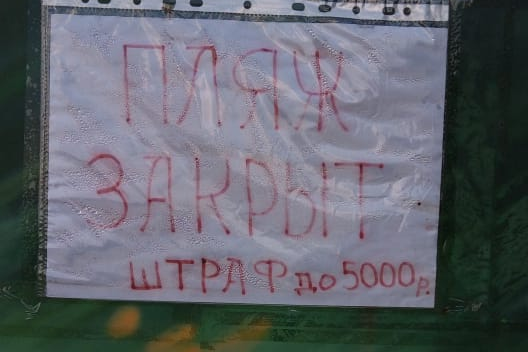 ПЛЯЖ
ЗАКРЫТ
ШТРАФ до 5000р.